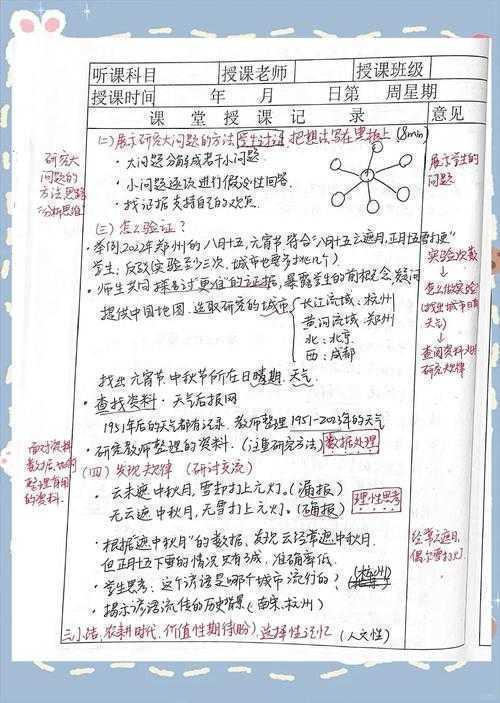 听课科目 授课老师 授课班级
授课时间 年 月 日第 周星期
课 堂 授 课 记 录 意见
(二)展示研究大问题的方法 学生讨论 把想法写在黑板上 (8min)
·大问题分解成若干小问题.
·小问题逐次进行假设性回答.
·找证据支持自己的观点.
研究大
问题的
方法,思路
分析思维
展示学生的
问题.
(三)怎么验证?
·举例,2022年郑州的八月十五,元宵节符合"八月十五云遮月,正月十五雪打灯"
学生:反驳(实验至少三次,城市也要多找几个)
·师生共同探讨"更准"的证据,暴露学生的前概念,发问
提供中国地图.选取研究的城市
长江流域:杭州
黄河流域:郑州
北:北京
西:成都
找出元宵节.中秋节所在日期.天气
实验次数
↓
怎么做实验
(找出城市日期
天气)
↓
查阅资料
研究规律
·查找资料·天气后报网
1951年后的天气都有记录.教师整理1951-2023年的天气
·研究教师整理的资料.(注重研究方法)数据处理
面对资料
数据,如何
整理有用
的资料.
(四)发现规律(研讨交流)
·云未遮中秋月,雪却打上元灯。(漏报)
无云遮中秋月,无雪打上元灯。(确报)
理性思考
·根据"遮中秋月"的数据,发现云经常遮中秋月.
但正月十五下雪的情况只有3成,准确率低.
经常云遮月,
偶尔雪打灯.
·学生思考.这个谚语是哪个城市流行的?(杭州)
·揭示谚语流传的历史背景(南宋.杭州)
三小结,农耕时代,价值性期待(盼),选择性记忆(人文性)